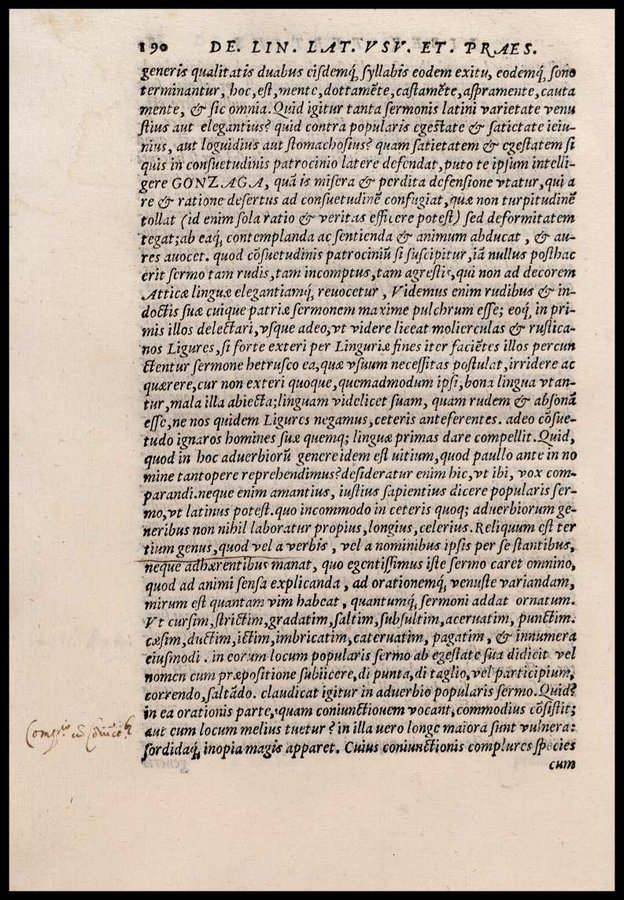 190 DE. LIN. LAT. VSV. ET. PRAES.
generis qualitatis duabus eisdemq́, syllabis eodem exitu, eodemq́, sono
terminantur, hoc, est, mente, dottamẽte, castamẽte, aspramente, cauta
mente, & sic omnia. Quid igitur tanta sermonis latini varietate venu
stius aut elegantius? quid contra popularis egestate & satietate ieiu-
nius, aut loguidius aut stomachosius? quam satietatem & egestatem si
quis in consuetudinis patrocinio latere defendat, puto te ipsum intelli-
gere GONZAGA, quã is misera & perdita defensione vtatur, qui a
re & ratione desertus ad consuetudinẽ confugiat, quæ non turpitudinẽ
tollat (id enim sola ratio & veritas efficere potest) sed deformitatem
tegat; ab eaq́, contemplanda ac sentienda & animum abducat, & au-
res auocet. quod cõsuetudinis patrociniũ si suscipitur, iã nullus posthac
erit sermo tam rudis, tam incomptus, tam agrestis, qui non ad decorem
Atticæ linguæ elegantiamq́, reuocetur, Videmus enim rudibus & in-
doctis suæ cuique patriæ sermonem maxime pulchrum esse; eoq́, in pri-
mis illos delectari, vsque adeo, vt videre liceat molierculas & rustica-
nos Ligures, si forte exteri per Linguriæ fines iter faciẽtes illos percun
ctentur sermone hetrusco ea, quæ vsuum necessitas postulat, irridere ac
quærere, cur non exteri quoque, quemadmodum ipsi, bona lingua vtan-
tur, mala illa abiecta; linguam videlicet suam, quam rudem & absonã
esse, ne nos quidem Ligures negamus, ceteris anteferentes. adeo cõsue-
tudo ignaros homines suæ quemq; linguæ primas dare compellit. Quid,
quod in hoc aduerbiorũ genere idem est uitium, quod paullo ante in no
mine tantopere reprehendimus? desideratur enim hic, vt ibi, vox com-
parandi. neque enim amantius, iustius sapientius dicere popularis ser-
mo, vt latinus potest. quo incommodo in ceteris quoq; aduerbiorum ge-
neribus non nihil laboratur propius, longius, celerius. Reliquum est ter
tium genus, quod vel a verbis, vel a nominibus ipsis per se stantibus,
neque adhærentibus manat, quo egentissimus iste sermo caret omnino,
quod ad animi sensa explicanda, ad orationemq́, venuste variandam,
mirum est quantam vim habeat, quantumq́, sermoni addat ornatum.
Vt cursim, strictim, gradatim, saltim, subsultim, aceruatim, punctim.
cæsim, ductim, ictim, imbricatim, cateruatim, pagatim, & innumera
eiusmodi. in eorum locum popularis sermo ab egestate sua didicit vel
nomen cum præpositione subiicere, di punta, di taglio, vel participium,
correndo, saltãdo. claudicat igitur in aduerbio popularis sermo. Quid?
in ea orationis parte, quam coniunctionem vocant, commodius cõsistit;
aut eum locum melius tuetur? in illa uero longe maiora sunt vulnera:
sordidaq́, inopia magis apparet. Cuius coniunctionis complures species
cum